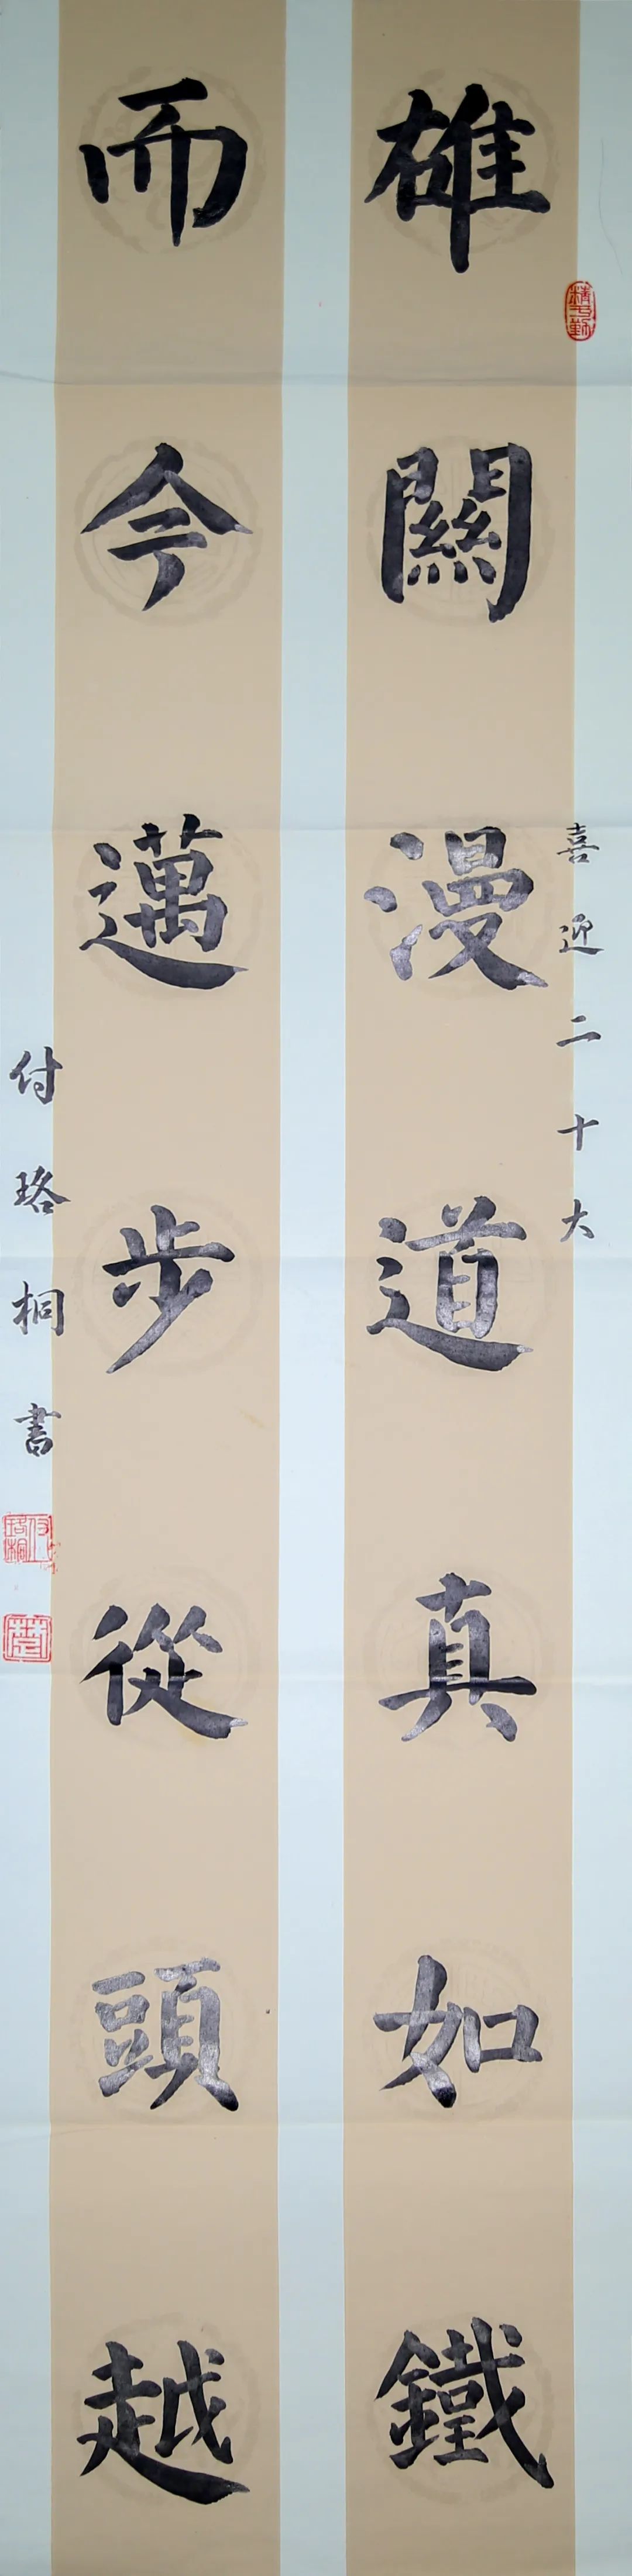 喜迎二十大
雄關漫道真如鐵
而今邁步從頭越
付珞桐書
付珞桐